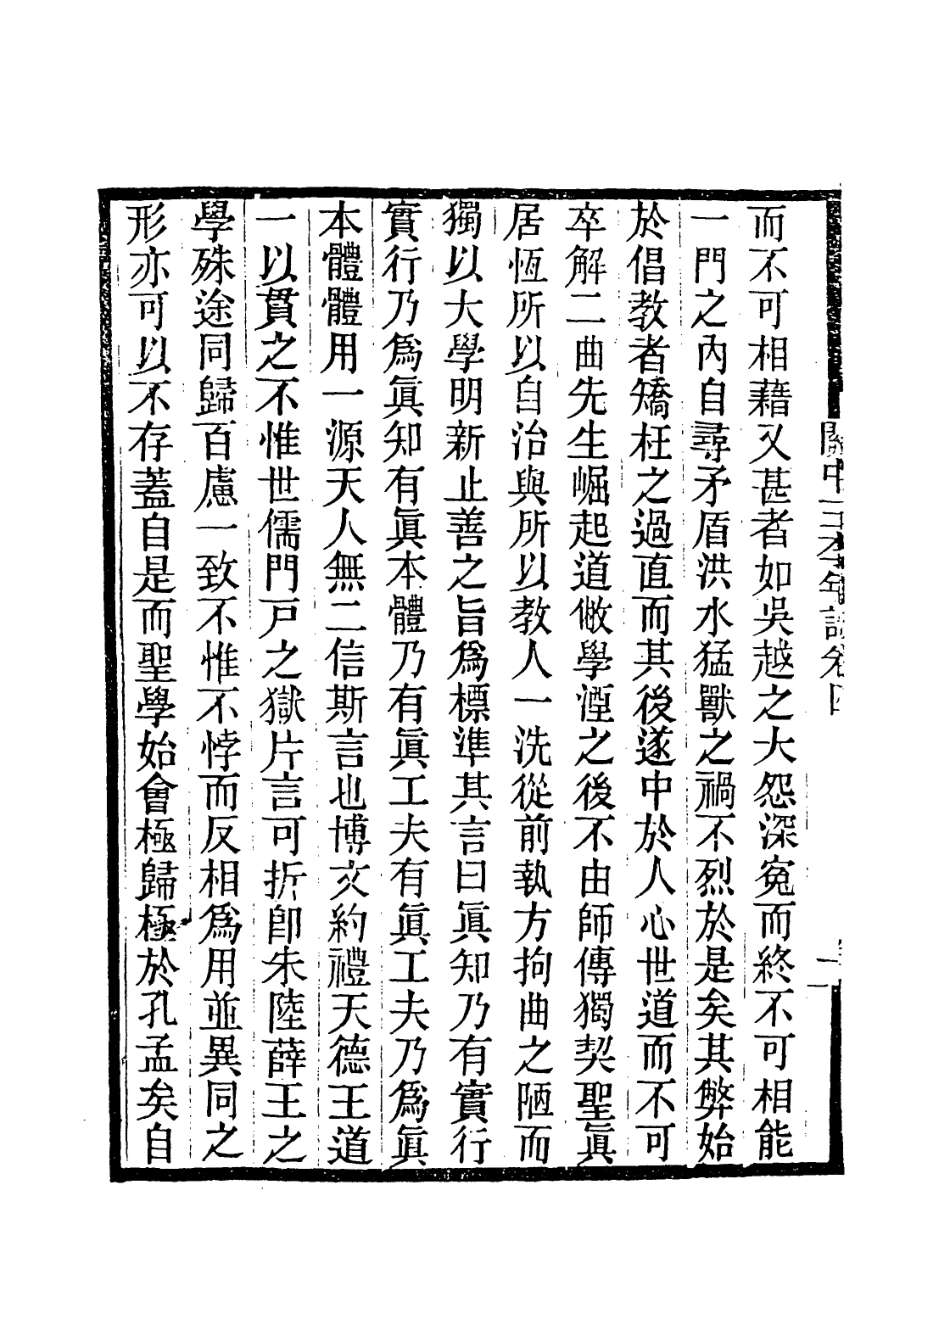 而不可相藉又甚者如吳越之大怨深寃而終不可相能
一門之內自尋矛盾洪水猛獸之禍不烈於是矣其弊始
於倡教者矯枉之過直而其後遂中於人心世道而不可
卒解二曲先生崛起道敝學湮之後不由師傳獨契聖眞
居恆所以自治與所以教人一洗從前執方拘曲之陋而
獨以大學明新止善之旨爲標準其言曰眞知乃有實行
實行乃爲眞知有眞本體乃有眞工夫有眞工夫乃爲眞
本體體用一源天人無二信斯言也博文約禮天德王道
一以貫之不惟世儒門戸之獄片言可折卽朱陸薛王之
學殊途同歸百慮一致不惟不悖而反相爲用並異同之
形亦可以不存蓋自是而聖學始會極歸極於孔孟矣自